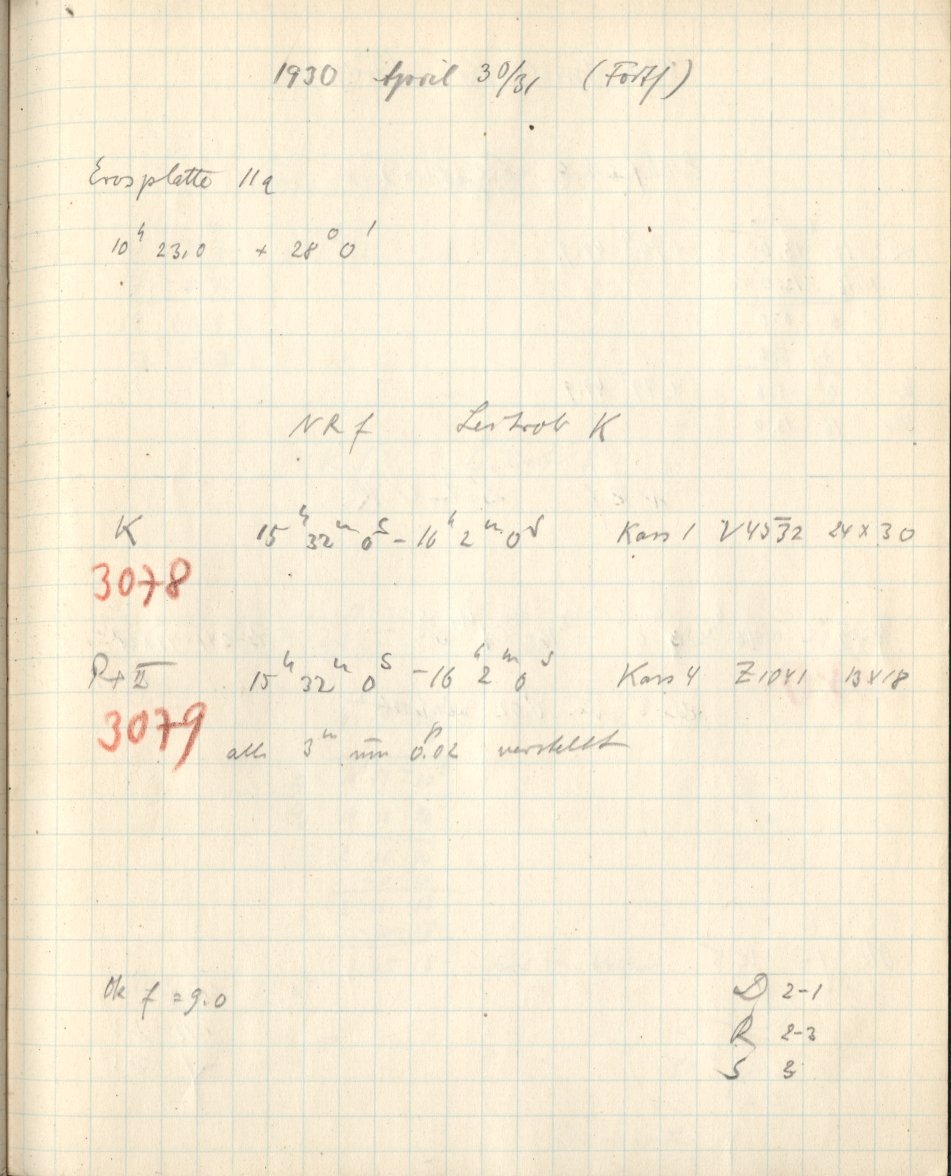 1930 April 30/31 (Forts)
Erosplatte 11a
10ʰ 23,0 + 28° 0'
NRf Leitrohr K
K 15ʰ 32ᵐ 0ˢ - 16ʰ 2ᵐ 0ˢ Kass 1 V4532 24 x 30
3078
R+II 15ʰ 32ᵐ 0ˢ - 16ʰ 2ᵐ 0ˢ Kass 4 Z1041 13 x 18
3079
alle 3ᵐ um 0ᵖ.02 verstellt
Ok f = 9.0
D 2-1
R 2-3
S 3